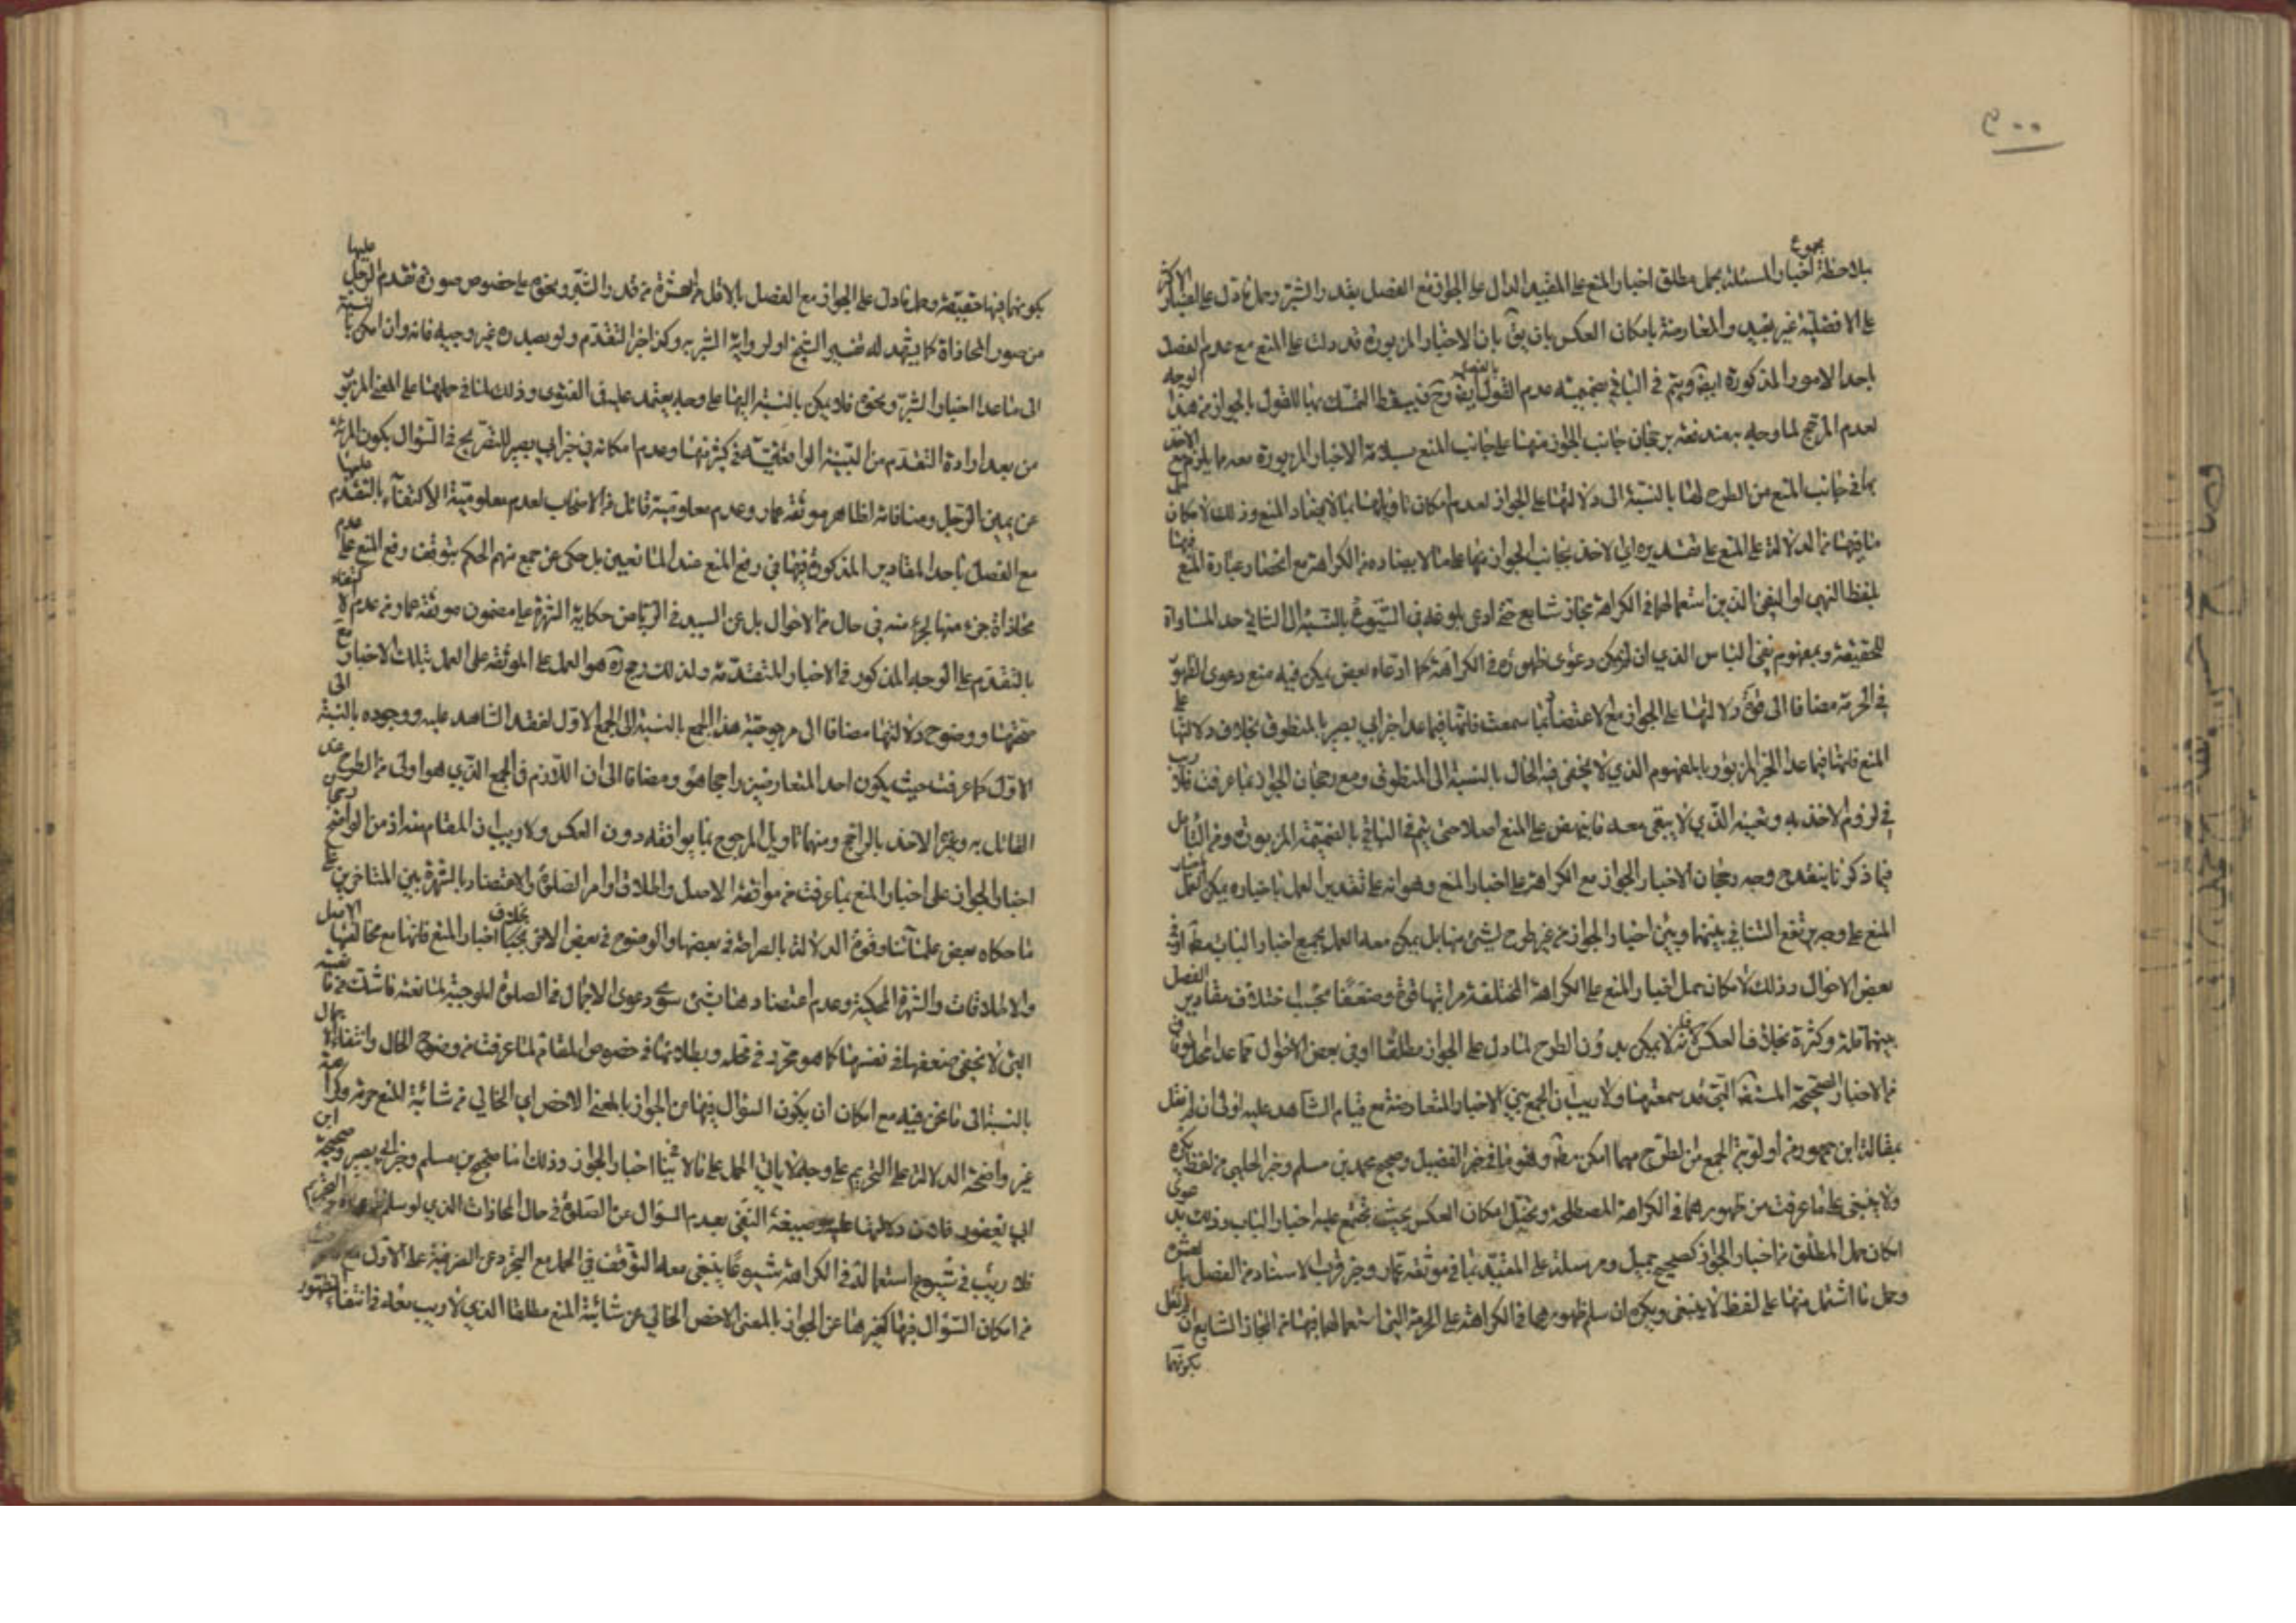 ٣٠٠
بملاحظة مجموع اخبار المسئلة بحمل مطلق اخبار المنع على المقيد الدال على الجواز مع الفصل بقدر الشبر وحمل ما دل على اعتبار الاكثر
على الافضلية غير مفيد والمعارضة بامكان العكس بان يق بان الاخبار المزبورة قد دلت على المنع مع عدم الفصل
باحد الامور المذكورة ايضا ويتم في الباقي بضميمة عدم القول بالفصل ايضا وح فيسقط التمسك بها للقول بالجواز من هذا الوجه
لعدم المرجح لما وجه به مندفعة برجحان جانب الجواز منها على جانب المنع بسلامة الاخبار المزبورة معه مما يلزم مع الاخذ
بما في جانب المنع من الطرح لها بالنسبة الى دلالتها على الجواز لعدم امكان تاويلها بما لا يضاد المنع وذلك لامكان
ما فيها من الدلالة على المنع على تقديره اي الاخذ بجانب الجواز منها على ما لا يضاده من الكراهة مع انحصار عبارة المنع فيها
بلفظ النهي او النفي الذين استعمالهما في الكراهة مجاز شايع حتى ادى بلوغه في الشيوع بالنسبة الى الثاني حد المساواة
للحقيقة وبمفهوم نفي الباس الذي ان لم يكن دعوى ظهوره في الكراهة كما ادعاه بعض يمكن فيه منع دعوى الظهور
في الحرمة مضافا الى قوة دلالتها على الجواز مع الاعتضاد بما سمعت فانها فيما عدا خبر ابي بصير بالمنطوق بخلاف دلالتها على
المنع فانها فيما عدا الخبر المزبور بالمفهوم الذي لا يخفى فيه الحال بالنسبة الى المنطوق ومع رجحان الجواز بما عرفت فلا ريب
في لزوم الاخذ به وتعينه الذي لا يبقى معه ما ينهض على المنع اصلا حتى يتم في الباقي بالضميمة المزبورة ومن التامل
فيما ذكرنا ينقدح وجه رجحان الاخبار الجواز مع الكراهة على اخبار المنع وهو انه على تقدير العمل باخباره يمكن العمل باخبار
المنع على وجه يرتفع التنافي بينهما وبين اخبار الجواز من غير طرح لشئ منها بل يمكن معه العمل بجميع اخبار الباب مط او في
بعض الاحوال وذلك لامكان حمل اخبار المنع على الكراهة المختلفة مراتبها قوة وضعفا بحسب اختلاف مقادير الفصل
بينهما قلة وكثرة بخلاف العكس فانه لا يمكن بدون الطرح لما دل على الجواز مطلقا او في بعض الاحوال مما عدا
من الاخبار الصحيحة المستفيضة التي قد سمعتها ولا ريب ان الجمع بين الاخبار المتعارضة مع قيام الشاهد عليه اولى ان لم نقل
بمقالة ابن جمهور من اولوية الجمع من الطرح مهما امكن مط وهو ما في خبر الفضيل وصحيح محمد بن مسلم وخبر الحلبي من لفظ يكره
ولا ينبغي على ما عرفت من ظهورهما في الكراهة المصطلحة وتخيل امكان العكس بحيث يجتمع عليه اخبار الباب
امكان حمل المطلق من اخبار الجواز كصحيح جميل ومرسلة على المقيد بما في موثقة عمار وخبر قرب الاسناد من الفصل بالعشرة
وحمل ما اشتمل منها على لفظ لا ينبغي ويكره ان سلم ظهورهما في الكراهة على الحرمة التي استعمالهما فيها من المجاز الشايع ان لم نقل
بكونهما
بكونهما فيها حقيقة وحمل ما دل على الجواز مع الفصل بالاقل من العشرة من قدر الشبر ونحوه على خصوص صورة تقدم الرجل عليها
من صور المحاذاة كما يشهد له تفسير الشيخ او لرواية الشبر به وكذا خبر التقدم ولو بصدره غير وجيه فانه وان امكن بالنسبة
الى ما عدا اخبار الشبر ونحوه فلا يمكن بالنسبة اليها على وجه يعتمد عليه في الفتوى وذلك لمنافي حملها على المعنى المزبور
من بعد ارادة التقدم من البينية الواقعية في كثير منها وعدم امكانه في خبر ابي بصير للتصريح في السؤال بكون المرئة
عن يمين الرجل ومنافاته لظاهر موثقة عمار وعدم معلومية قائل من الاصحاب لعدم معلومية الاكتفاء بالتقدم عليها
مع الفصل باحد المقادير المذكورة فيها في رفع المنع عند المانعين بل حكي عن جمع منهم الحكم بتوقف رفع المنع على عدم
محاذاة جزء منها لجزء منه في حال من الاحوال بل عن السيد في الرياض حكاية الشهرة على مضمون موثقة عمار من عدم الاكتفاء
بالتقدم على الوجه المذكور في الاخبار المتقدمة ولذلك رجح ره هو العمل على الموثقة على العمل بتلك الاخبار مع
صحتها ووضوح دلالتها مضافا الى مرجوحية هذا الجمع بالنسبة الى الجمع الاول لفقد الشاهد عليه ووجوده بالنسبة الى
الاول كما عرفت حيث يكون احد المتعارضين راجحا هو ومضافا الى ان اللازم في الجمع الذي هو اولى من الطرح عند
القائل به وغيره الاخذ بالراجح ومنهما تاويل المرجوح بما يوافقه دون العكس ولا ريب ان المقام منه اذ من الواضح رجحان
اخبار الجواز على اخبار المنع بما عرفت من موافقة الاصل واطلاق اوامر الصلوة والاعتضاد بالشهرة بين المتاخرين على
ما حكاه بعض علمائنا وقوة الدلالة بالصراحة في بعضها والوضوح في بعض الاخر بخلاف اخبار المنع فانها مع مخالفتها الاصل
والاطلاقات والشهرة المحكية وعدم اعتضادها بشئ سوى دعوى الاجمال في الصلوة الموجبة لمانعية ما شك في مانعيته
التي لا يخفى ضعفها في نفسها كما هو محرر في محله وبطلانها في خصوص المقام لما عرفت من وضوح الحال وانتفاء الاجمال
بالنسبة الى ما نحن فيه مع امكان ان يكون السؤال فيها عن الجواز بالمعنى الاخص اي الخالي من شائبة المنع حرمة وكراهة
غير واضحة الدلالة على التحريم على وجه لا يابى الحمل على ما لا ينافي اخبار الجواز وذلك اما صحيح بن مسلم وخبر ابي بصير وصحيحة ابن
ابي يعفور فلان دلالتها عليه بصيغة النفي بعد السؤال عن الصلوة في حال المحاذات الذي لو سلم
فلا ريب في شيوع استعماله في الكراهة شيوعا ينبغي معه التوقف في الحمل مع التجرد عن القرينة على الاول
من امكان السؤال فيها كغيرها عن الجواز بالمعنى الاخص الخالي عن شائبة المنع مطلقا الذي لا ريب معه في انتفاء الظهور